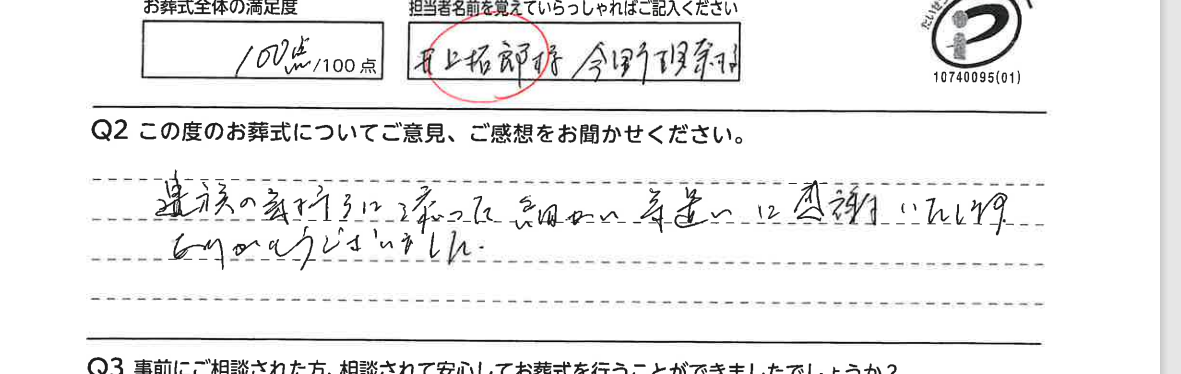 お葬式全体の満足度
担当者名前を覚えていらっしゃればご記入ください
100点/100点
井上拓郎様 今野
たいせつ
10740095(01)
Q2 この度のお葬式についてご意見、ご感想をお聞かせください。
遺族の気持ちに添った細かい気遣いに感謝いたします
ありがとうございました.
Q3 事前にご相談された方、相談されて安心してお葬式を行うことができましたでしょうか？